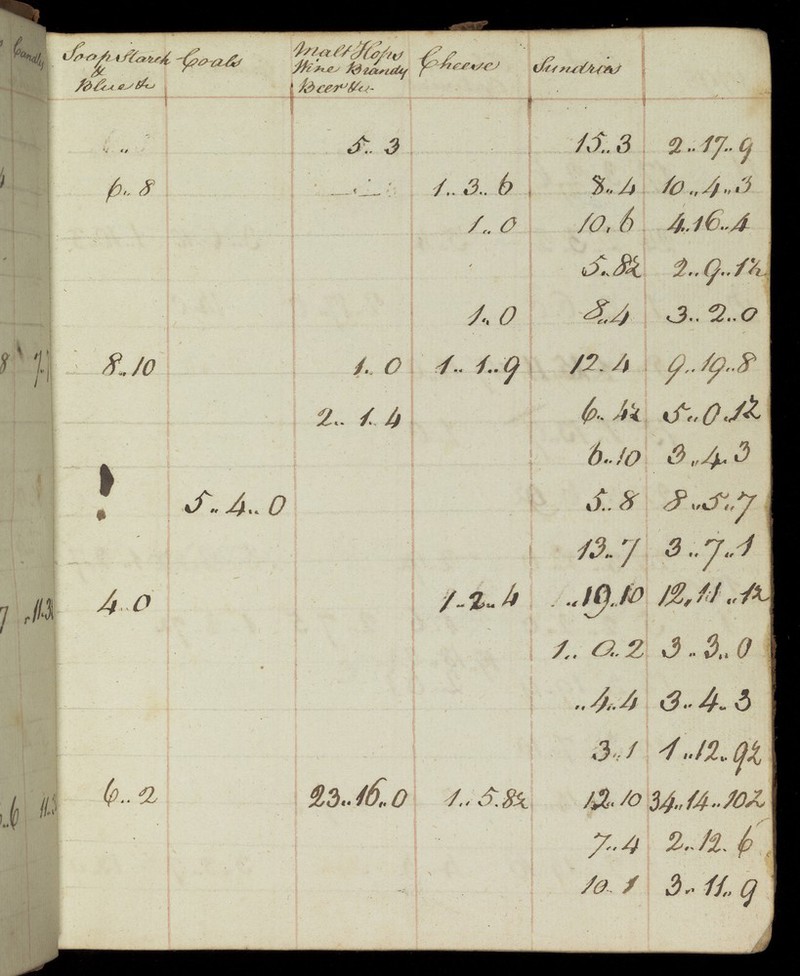 Candles
Soap Starch & Blue &c Coals Malt Hops Wine Brandy Beer &c Cheese Sundries
" 5.. 3 15.. 3 2.. 17.. 9
6.. 8 1.. 3.. 6 8.. 4 10.. 4.. 3
1.. 0 10. 6 4.. 16.. 4
5.. 8½ 2.. 9.. 1½
1.. 0 8.. 4 3.. 2.. 0
8 7. 8.. 10 1.. 0 1.. 1.. 9 12. 4 9.. 19.. 8
2.. 1.. 4 6.. 4½ 5.. 0.. 1½
6.. 10 3.. 4.. 3
5.. 4.. 0 5.. 8 8.. 5.. 7
13.. 7 3.. 7.. 1
7 .. 11.. 3 4.. 0 1.. 2.. 4 .. 19.. 10 12.. 11.. 1½
1.. 0.. 2 3.. 3.. 0
.. 4.. 4 3.. 4.. 3
3.. 1 1.. 12.. 9½
.. 6 11. 6.. 2 23.. 16.. 0 1.. 5. 8½ 12.. 10 34.. 14.. 10½
7.. 4 2.. 12. 6
10.. 1 3.. 11.. 9